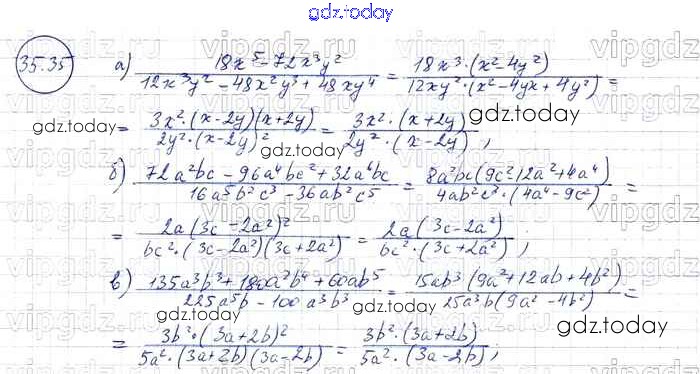 gdz.today
35.35 а) (18x⁵ - 72x³y²)/(12x³y² - 48x²y³ + 48xy⁴) = (18x³·(x² - 4y²))/(12xy²·(x² - 4yx + 4y²)) =
= (3x²·(x-2y)(x+2y))/(2y²·(x-2y)²) = (3x²·(x+2y))/(2y²·(x-2y));
gdz.today
gdz.today
б) (72a²bc - 96a⁴bc² + 32a⁶bc)/(16a⁵b²c³ - 36ab²c⁵) = (8a²bc(9c² 12a² + 4a⁴))/(4ab²c³·(4a⁴ - 9c²)) =
= (2a(3c - 2a²)²)/(bc²·(3c - 2a²)(3c + 2a²)) = (2a(3c - 2a²))/(bc²·(3c + 2a²));
в) (135a³b³ + 180a²b⁴ + 60ab⁵)/(225a⁵b - 100a³b³) = (15ab³(9a² + 12ab + 4b²))/(25a³b(9a² - 4b²)) =
gdz.today
= (3b²·(3a+2b)²)/(5a²·(3a+2b)(3a-2b)) = (3b²·(3a+2b))/(5a²·(3a-2b));
gdz.today